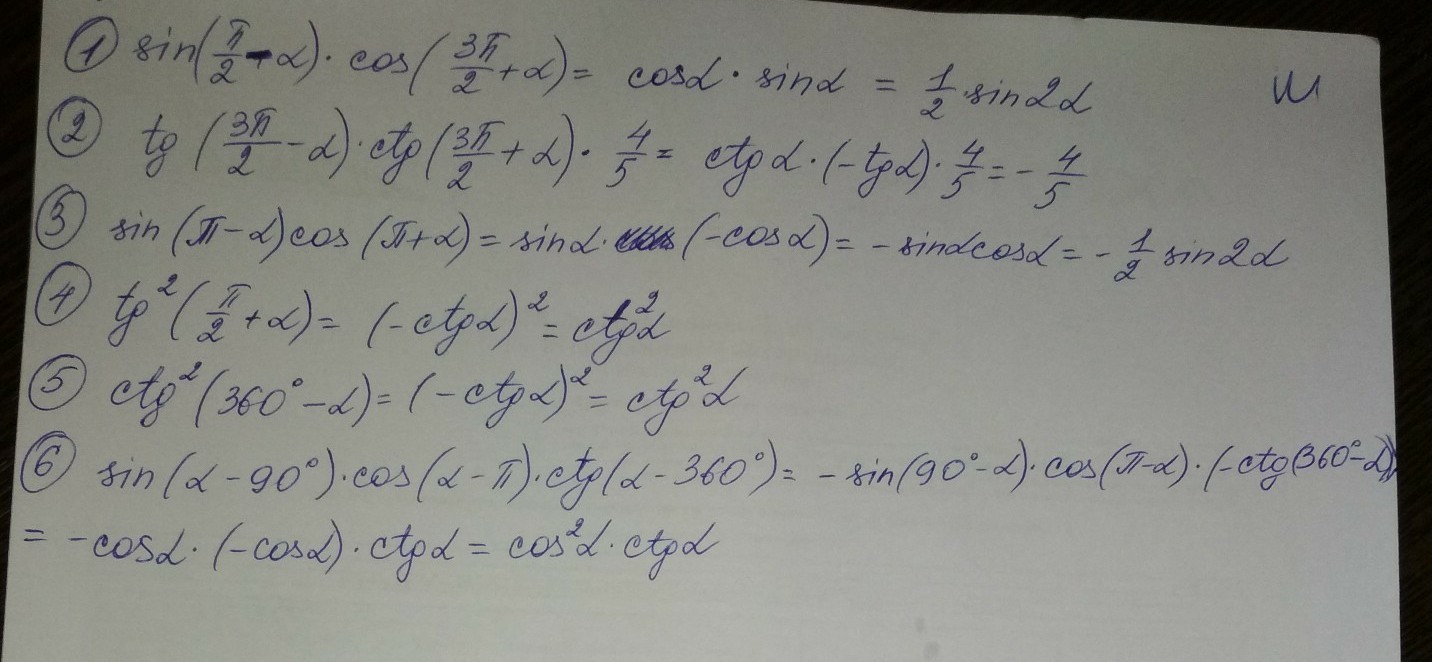 ① sin(π/2 - α) · cos(3π/2 + α) = cosα · sinα = 1/2 · sin2α
② tg(3π/2 - α) · ctg(3π/2 + α) · 4/5 = ctgα · (-tgα) · 4/5 = - 4/5
③ sin(π - α)cos(π + α) = sinα · (-cosα) = - sinαcosα = - 1/2 sin2α
④ tg²(π/2 + α) = (-ctgα)² = ctg²α
⑤ ctg²(360° - α) = (-ctgα)² = ctg²α
⑥ sin(α - 90°) · cos(α - π) · ctg(α - 360°) = - sin(90° - α) · cos(π - α) · (-ctg(360° - α))
= - cosα · (-cosα) · ctgα = cos²α · ctgα